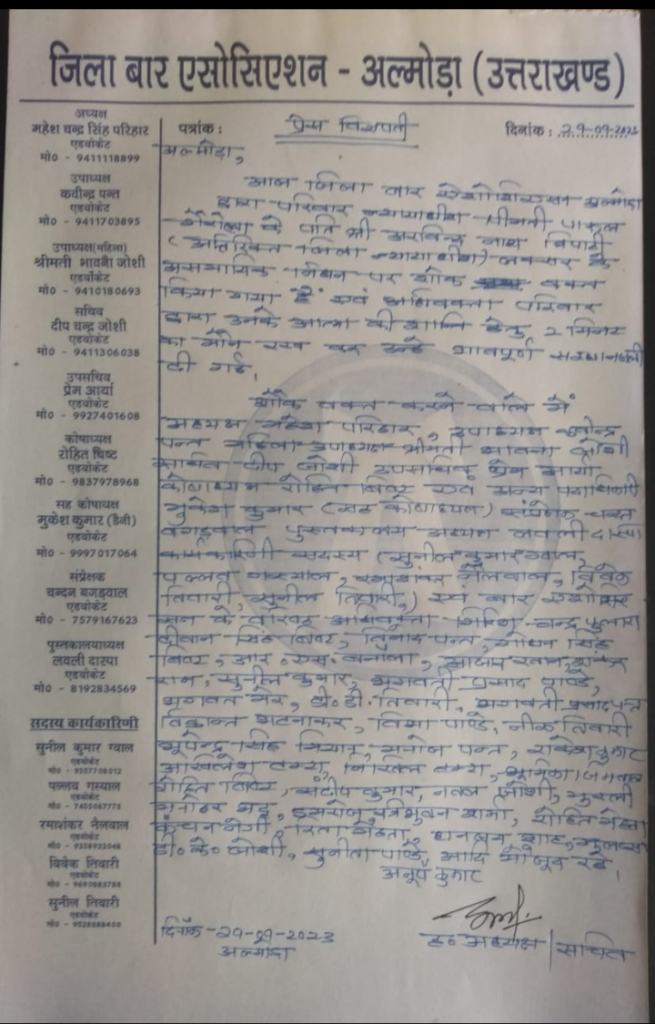 जिला बार एसोसिएशन - अल्मोड़ा (उत्तराखण्ड)
अध्यक्ष
महेश चन्द्र सिंह परिहार
एडवोकेट
मो० - 9411118899
उपाध्यक्ष
कवीन्द्र पन्त
एडवोकेट
मो० - 9411703895
उपाध्यक्ष(महिला)
श्रीमती भावना जोशी
एडर्वोकेट
मो० - 9410180693
सचिव
दीप चन्द्र जोशी
एडवोकेट
मो० - 9411306038
उपसचिव
प्रेम आर्या
एडवोकेट
मो० - 9927401608
कोषाध्यक्ष
रोहित बिष्ट
एडवोकेट
मो० - 9837978968
सह कोषाध्यक्ष
मुकेश कुमार (डैनी)
एडवोकेट
मो० - 9997017064
संप्रेक्षक
चन्दन बगड़वाल
एडवोकेट
मो० - 7579167623
पुस्तकालयाध्यक्ष
लवली दारपा
एडवोकेट
मो० - 8192834569
सदस्य कार्यकारिणी
सुनील कुमार ग्वाल
एडवोकेट
पल्लव गस्याल
एडवोकेट
रमाशंकर नैलवाल
एडवोकेट
विवेक तिवारी
एडवोकेट
सुनील तिवारी
एडवोकेट
पत्रांक : प्रेस विज्ञप्ती दिनांक : 29-09-2023
अल्मोड़ा,
आज जिला बार अल्मोडा
द्वारा परिवार न्यायाधीश श्रीमती पारूल
गैरोला के पति श्री अरविन्द नाथ त्रिपाठी
(अतिरिक्त जिला न्यायाधीश) लक्सर के
असमायिक निधन पर शोक वक्त
किया गया है एवं अधिवक्ता परिवार
द्वारा उनके आत्मा की शान्ति हेतु 2 मिनट
का मौन रख कर उन्हे भावपूर्ण
दी गई।
शोक वक्त करने वाले में
अध्यक्ष महेश परिहार, उपाध्यक्ष कवीन्द्र
पन्त महिला उपाध्यक्ष श्रीमती भावना जोशी
सचिव दीप जोशी उपसचिव प्रेम आर्या
कोषाध्यक्ष रोहित बिष्ट एवं अन्य
मुकेश कुमार (सह कोषाध्यक्ष) संप्रेक्षक चन्दन
बगड़वाल पुस्तकालय अध्यक्ष लवली दारपा
कार्यकारिणी सदस्य (सुनील कुमार ग्वाल,
पल्लव गस्याल, रमाशंकर नैलवाल, विवेक
तिवारी, सुनील तिवारी,) एवं बार
के अधिवक्ता गिरिश चन्द्र फुलारा
दीवान सिंह बिष्ट, पन्त, सिंह
बिष्ट, आर. एस. आजाद खान,
राम, सुनील कुमार, भगवती प्रसाद पाण्डे,
भगवत मेर, तिवारी, भगवती प्रसाद पन्त
विक्रान्त भटनाकर, विभा पाण्डे, तिवारी
भूपेन्द्र सिंह मियान, मनोज पन्त, राकेश कुमार
निखिलेश
रोहित बिष्ट, संदीप कुमार, जोशी, मुरली
मनोहर भट्ट, शर्मा, रोहित
कंचन नेगी, मेहता, धनन्जय शाह,
डी० के० जोशी, सुनीता पाण्डे आदि मौजूद रहे।
अनूप कुमार
दिनाँक-29-09-2023
अल्मोडा
ह० अध्यक्ष/सचिव